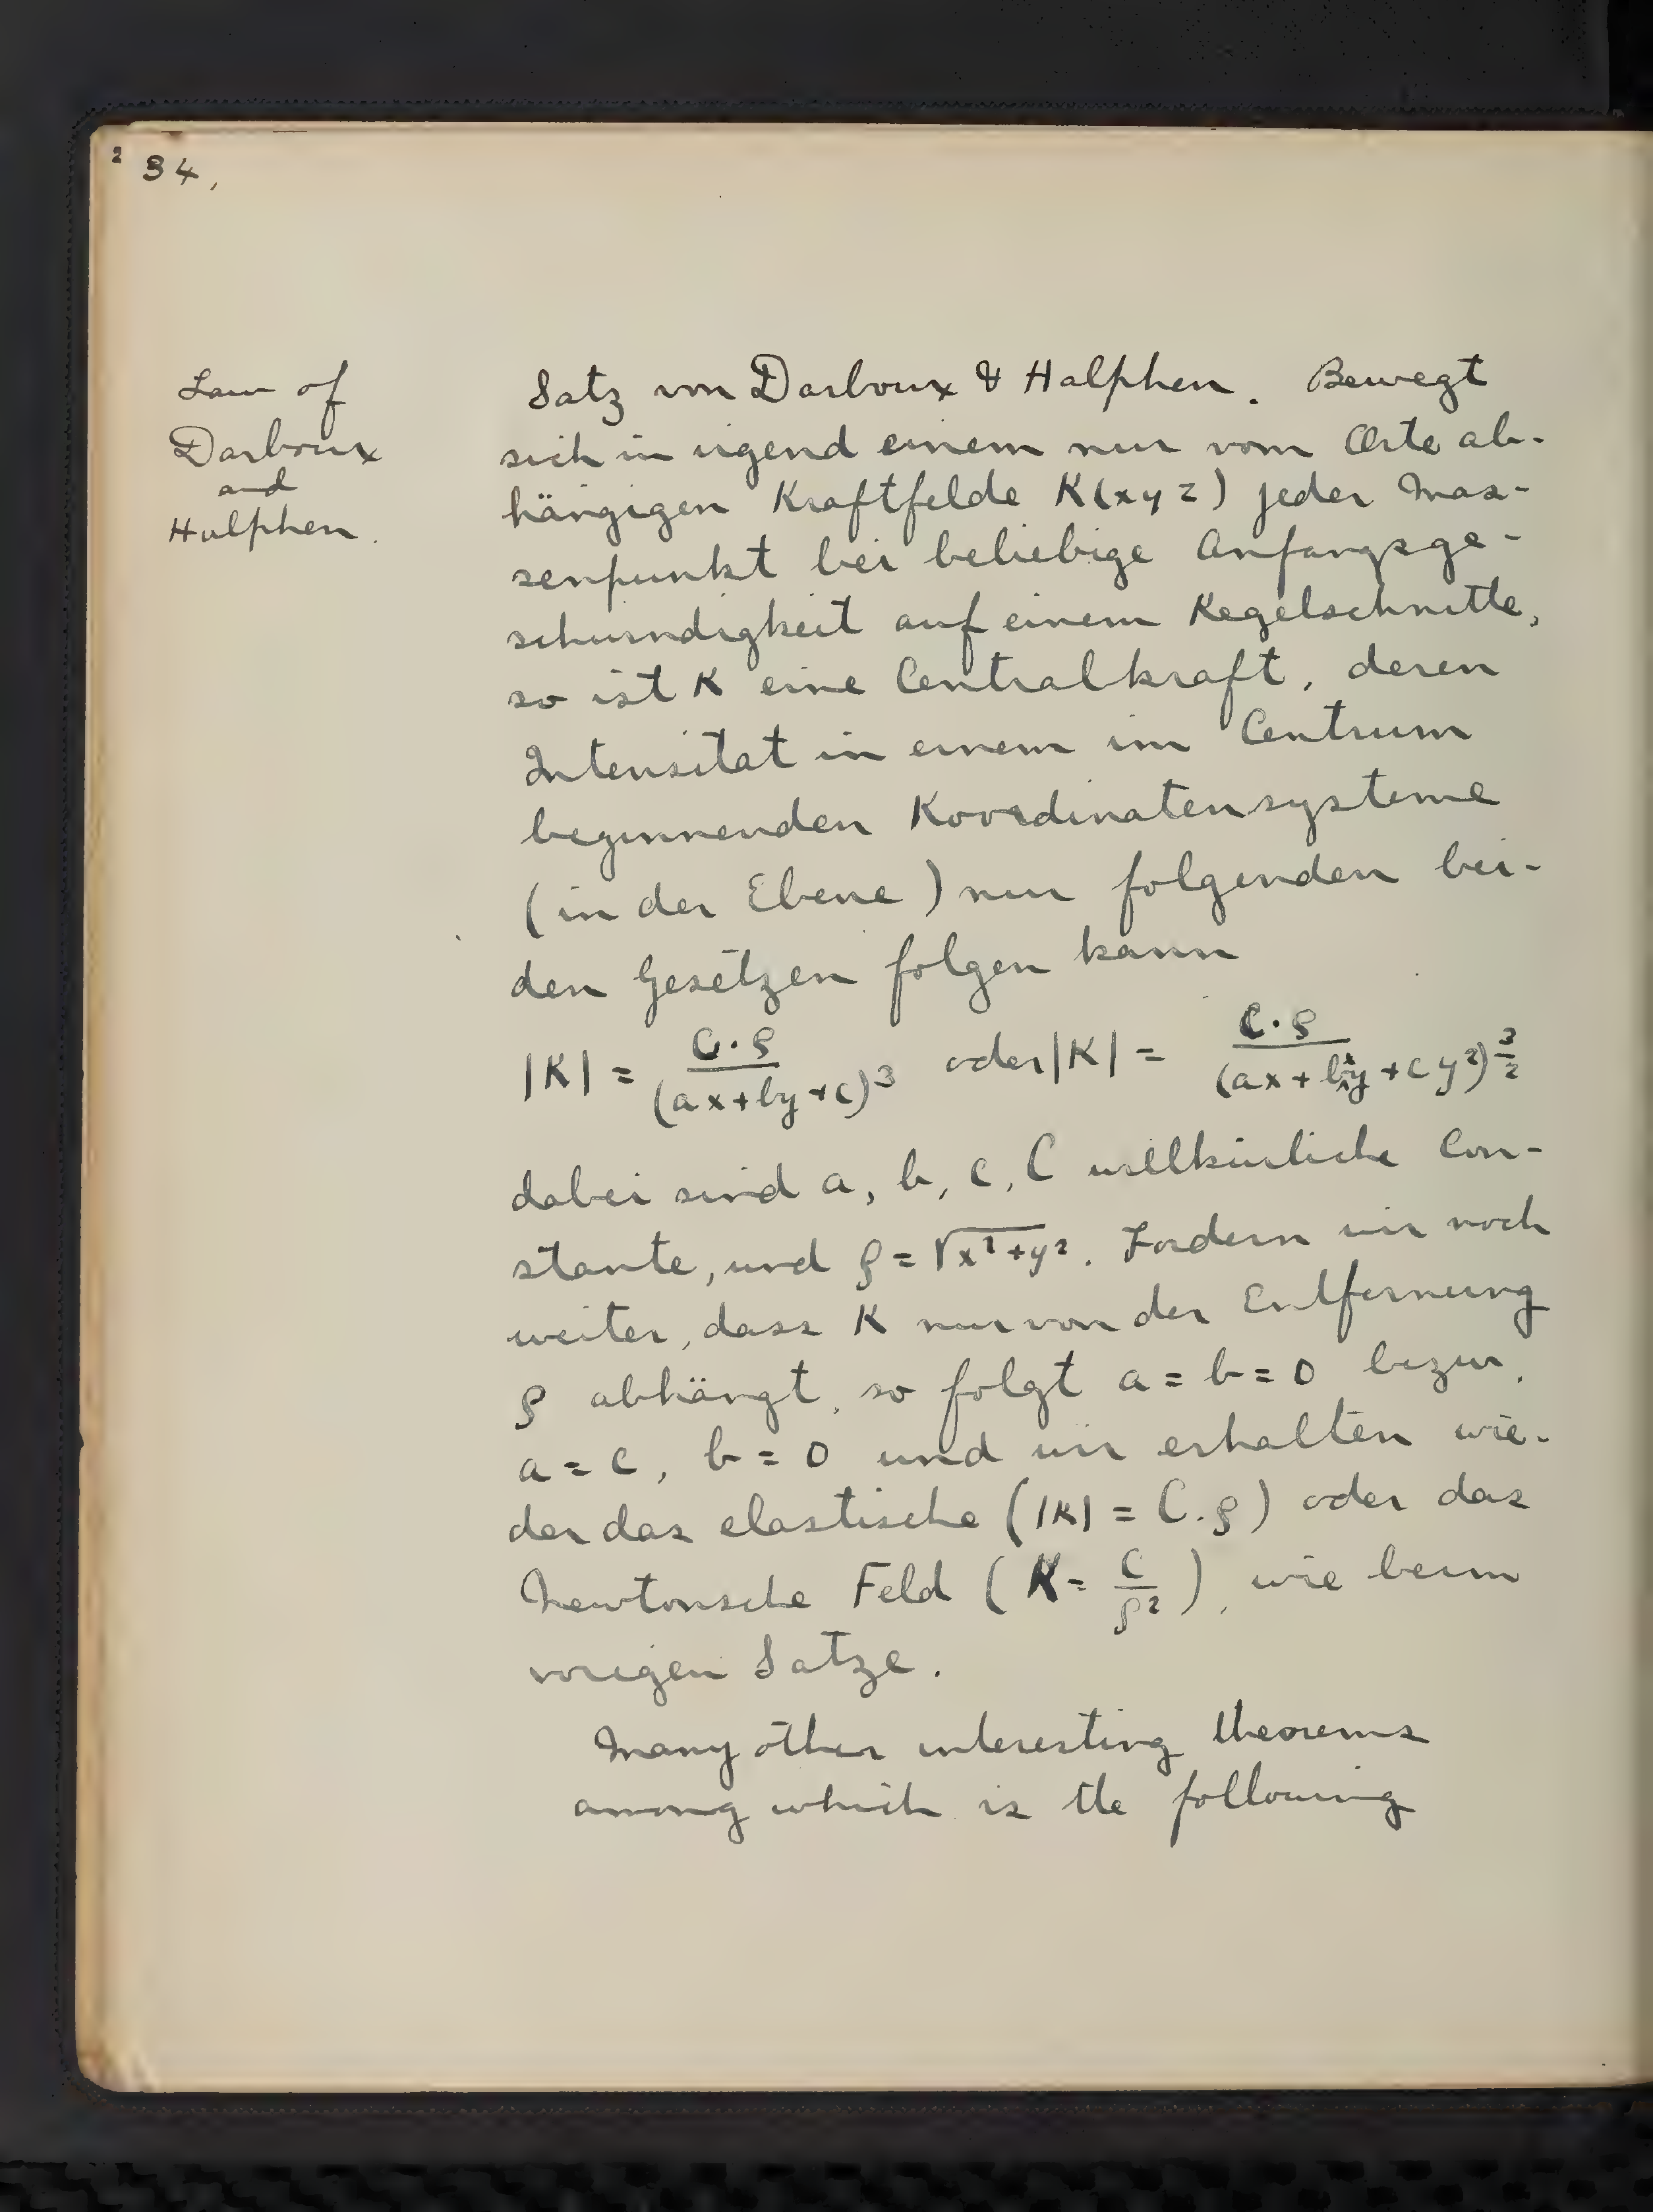 ² 34.
Law of
Darboux
and
Halphen.
Satz von Darboux & Halphen. Bewegt
sich in irgend einem nur vom Orte ab-
hängigen Kraftfelde K(xyz) jeder Mas-
senpunkt bei beliebige Anfangsge-
schwindigkeit auf einem Kegelschnitte,
so ist K eine Centralkraft, deren
Intensität in einem im Centrum
beginnenden Koordinatensysteme
(in der Ebene) nur folgenden bei-
den Gesetzen folgen kann
|K| = C·ρ/(ax+by+c)³ oder |K| = C·ρ/(ax+bxy+cy²)^(3/2)
dabei sind a, b, c, C willkürliche Con-
stante, und ρ = √x²+y². Fordern wir noch
weiter, dass K nur von der Entfernung
ρ abhängt, so folgt a = b = 0 bezw.
a = c, b = 0 und wir erhalten wie-
der das elastische (|K| = C.ρ) oder das
Newtonsche Feld (K = C/ρ²), wie beim
vorigen Satze.
Many other interesting theorems
among which is the following